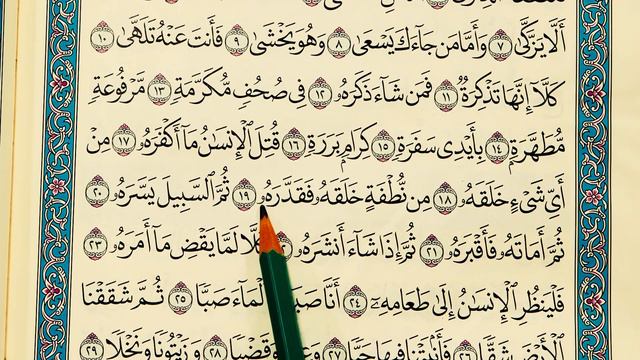 أَلَّا يَزَّكَّىٰ ٧ وَأَمَّا مَن جَآءَكَ يَسْعَىٰ ٨ وَهُوَ يَخْشَىٰ ٩ فَأَنتَ عَنْهُ تَلَهَّىٰ ١٠
كَلَّآ إِنَّهَا تَذْكِرَةٌ ١١ فَمَن شَآءَ ذَكَرَهُۥ ١٢ فِى صُحُفٍ مُّكَرَّمَةٍ ١٣ مَّرْفُوعَةٍ
مُّطَهَّرَةٍۭ ١٤ بِأَيْدِى سَفَرَةٍ ١٥ كِرَامٍۭ بَرَرَةٍ ١٦ قُتِلَ ٱلْإِنسَٰنُ مَآ أَكْفَرَهُۥ ١٧ مِنْ
أَىِّ شَىْءٍ خَلَقَهُۥ ١٨ مِن نُّطْفَةٍ خَلَقَهُۥ فَقَدَّرَهُۥ ١٩ ثُمَّ ٱلسَّبِيلَ يَسَّرَهُۥ ٢٠
ثُمَّ أَمَاتَهُۥ فَأَقْبَرَهُۥ ٢١ ثُمَّ إِذَا شَآءَ أَنشَرَهُۥ كَلَّا لَمَّا يَقْضِ مَآ أَمَرَهُۥ ٢٣
فَلْيَنظُرِ ٱلْإِنسَٰنُ إِلَىٰ طَعَامِهِۦٓ ٢٤ أَنَّا صَبَبْنَا ٱلْمَآءَ صَبًّا ٢٥ ثُمَّ شَقَقْنَا
ٱلْأَرْضَ شَقًّا ٢٦ فَأَنۢبَتْنَا فِيهَا حَبًّا ٢٧ وَقَضْبًا ٢٨ وَزَيْتُونًا وَنَخْلًا ٢٩